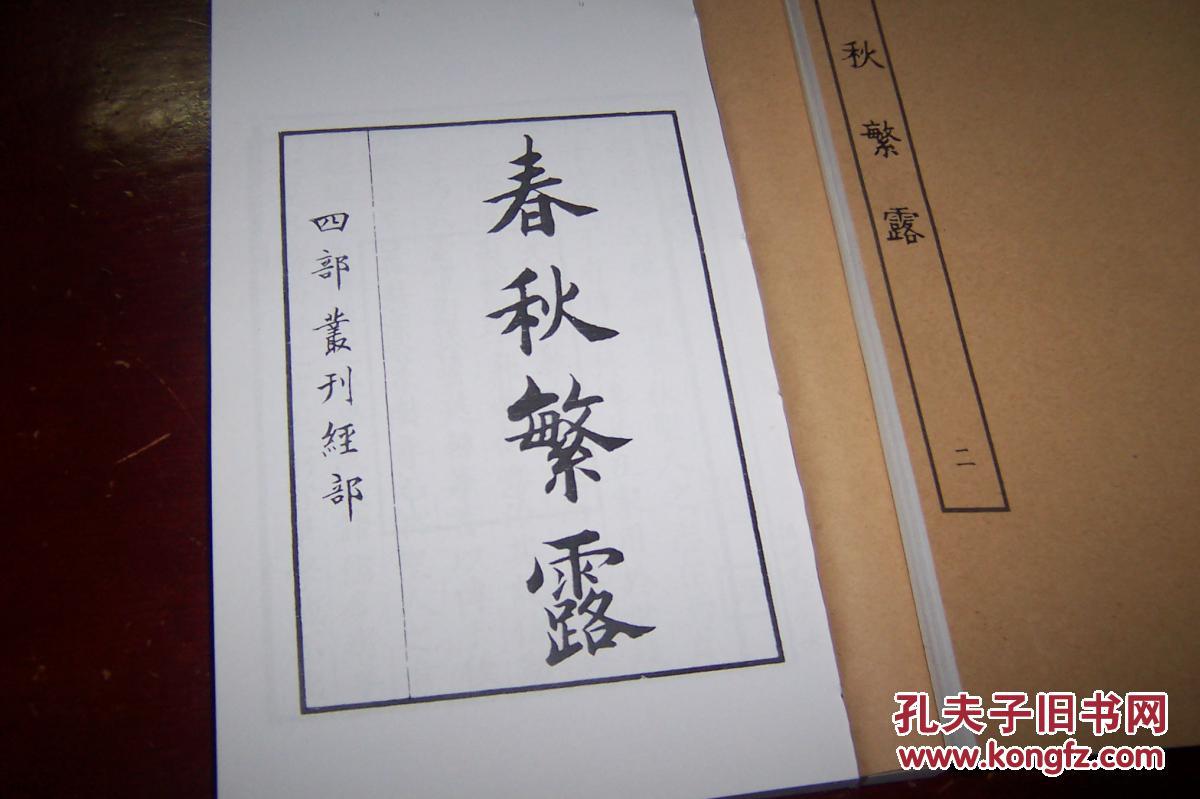 春秋繁露
四部叢刊經部
秋繁露
二
孔夫子旧书网
www.kongfz.com